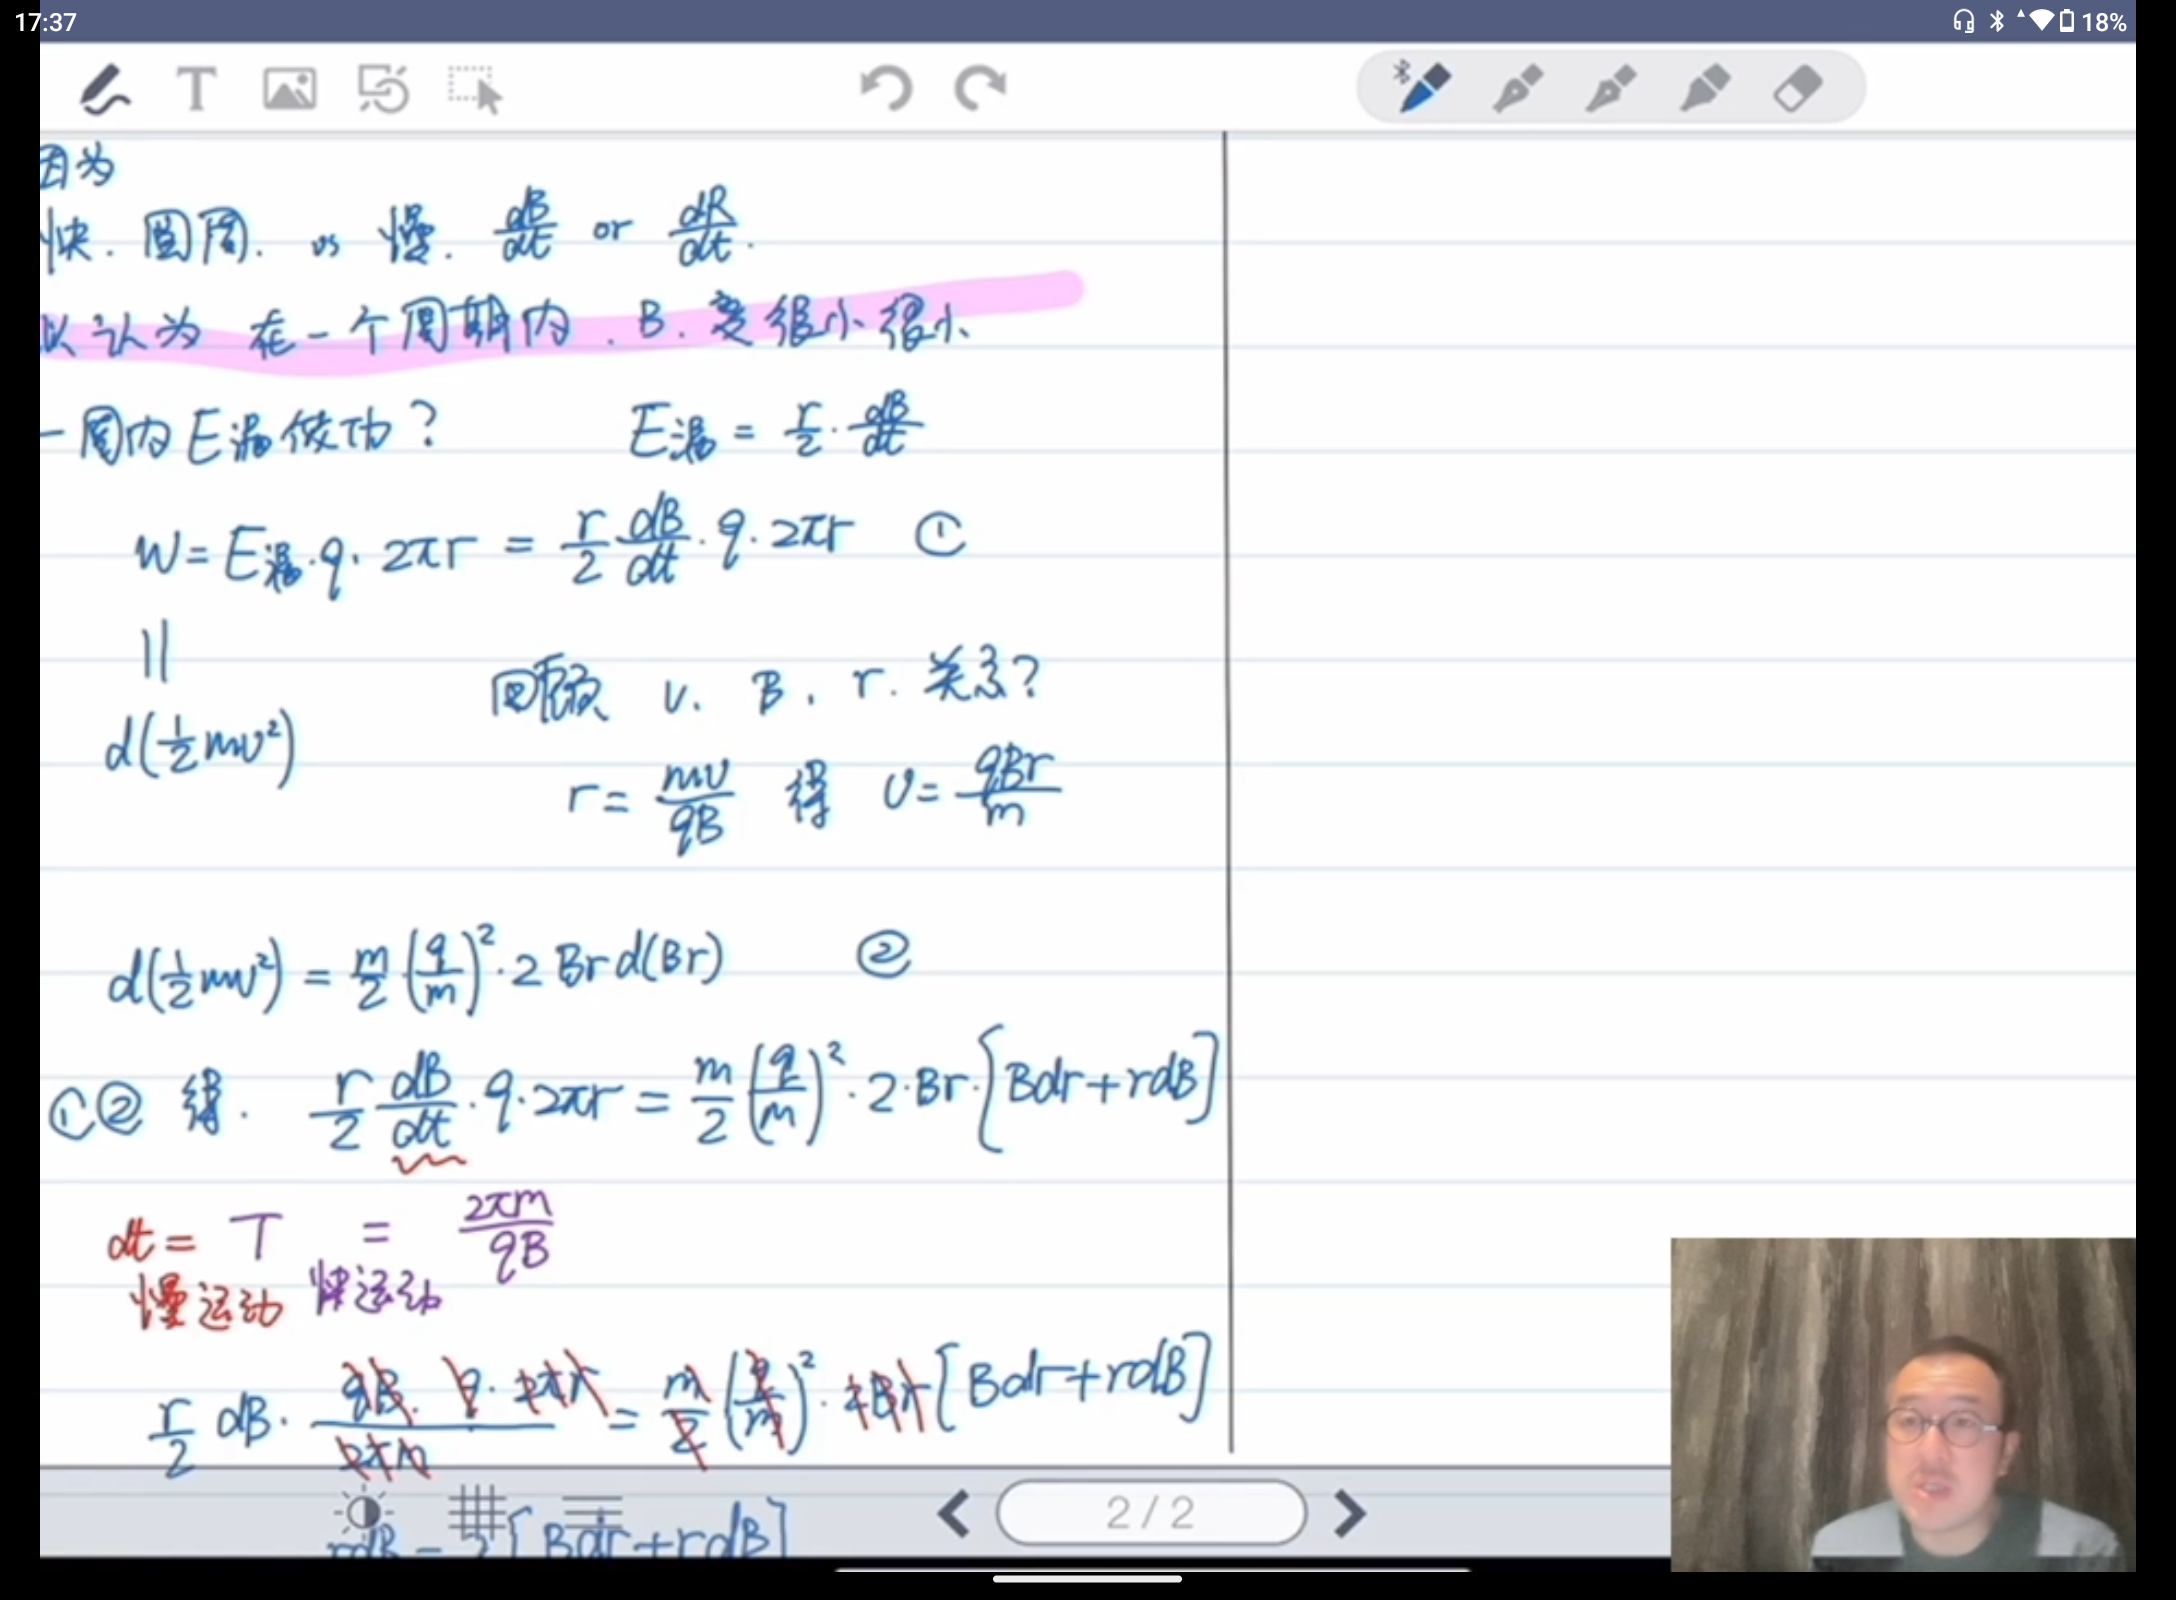 17:37
18%
因为
快. 圆周. vs 慢. dB/dt or dR/dt.
以认为 在一个周期内. B. 变很小很小
一周内E涡做功? E涡 = r/2 · dB/dt
W = E涡·q· 2πr = r/2 dB/dt · q · 2πr ①
||
回顾 v. B. r. 关系?
d(½mv²)
r = mv/qB 得 v = qBr/m
d(½mv²) = m/2 (q/m)² · 2 Br d(Br) ②
①② 得. r/2 dB/dt · q · 2πr = m/2 (q/m)² · 2 · Br · [Bdr + rdB]
dt = T = 2πm/qB
慢运动 快运动
r/2 dB · qB · q · 2πr / 2πm = m/2 (q/m)² · 2Br [Bdr + rdB]
2 / 2
rdB = 2[Bdr + rdB]